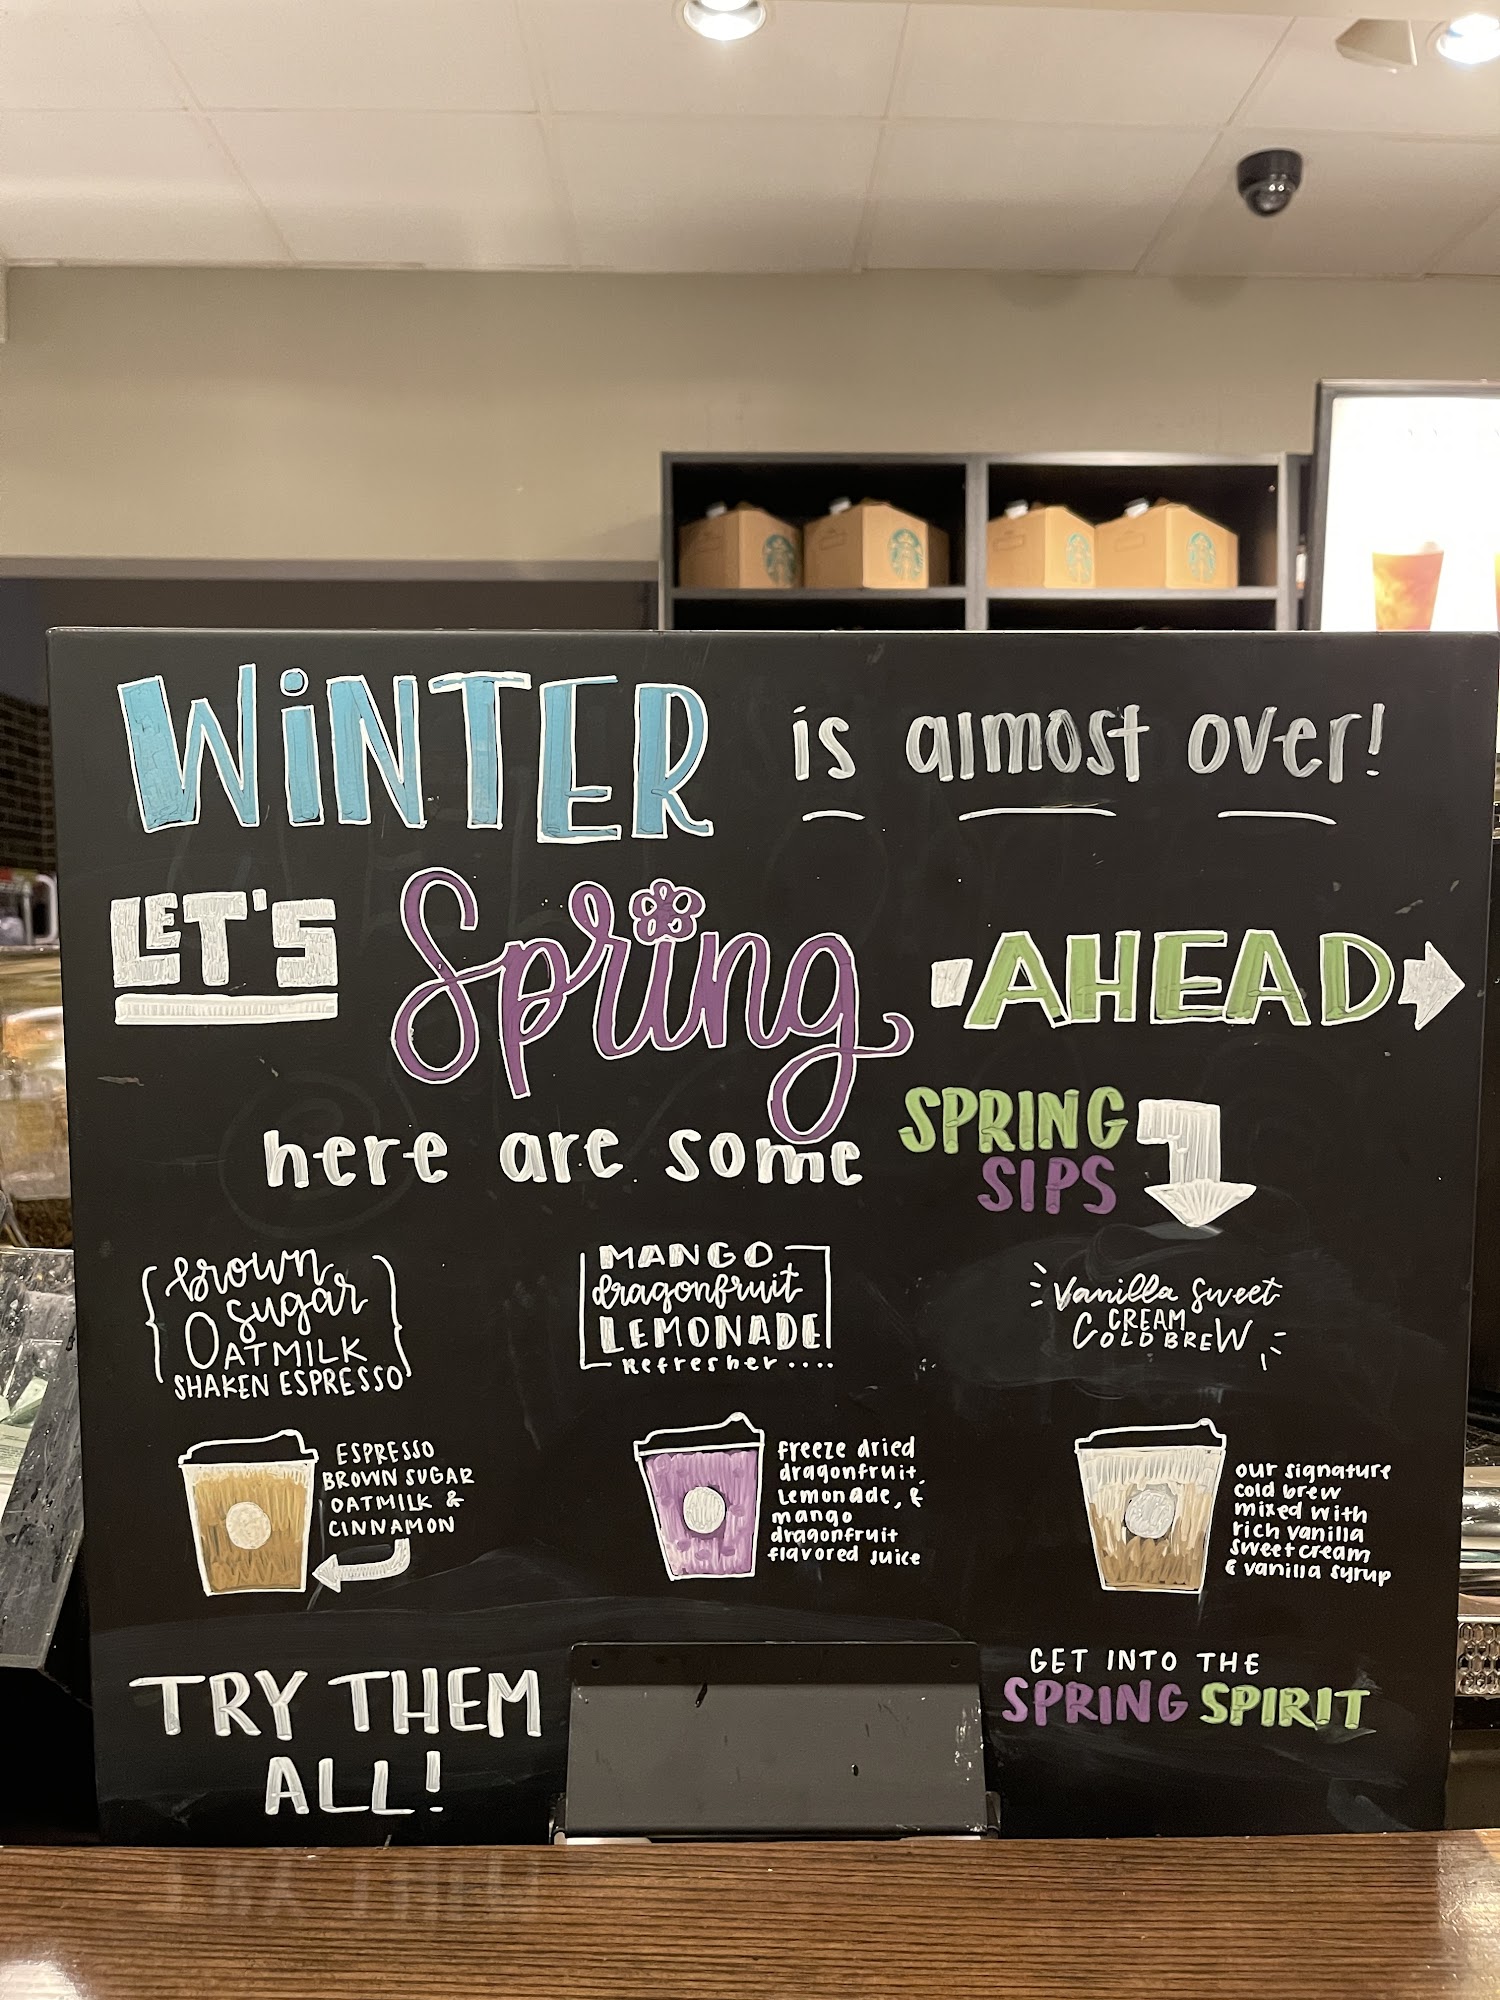 WiNTER is almost over!
LET'S Spring AHEAD
here are some SPRING
SIPS
brown
sugar
OATMILK
SHAKEN ESPRESSO
MANGO
dragonfruit
LEMONADE
Refresher....
Vanilla Sweet
CREAM
COLD BREW
ESPRESSO
BROWN SUGAR
OATMILK &
CINNAMON
freeze dried
dragonfruit,
Lemonade, &
mango
dragonfruit
flavored juice
our signature
cold brew
mixed with
rich vanilla
sweet cream
& vanilla syrup
TRY THEM
ALL!
GET INTO THE
SPRING SPIRIT